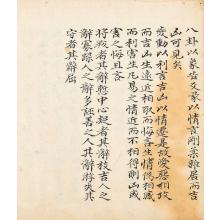 八卦以象告爻彖以情言剛柔雜居而吉
凶可見矣
變動以利言吉凶以情遷是故愛惡相攻
而吉凶生遠近相取而悔吝生情偽相感
而利害生凡易之情近而不相得則凶或
害之悔且吝
將叛者其辭慙中心疑者其辭枝吉人之
辭寡躁人之辭多誣善之人其辭游失其
守者其辭屈